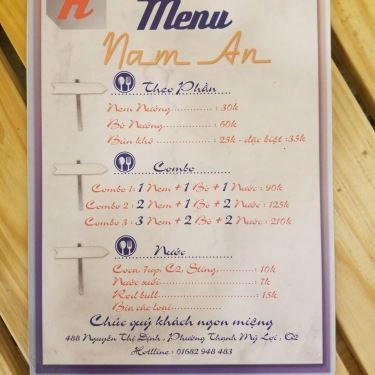 Menu
Nam An
Theo Phần
Nem Nướng.............: 30k
Bò Nướng...............: 60k
Bún khô ................: 25k - đặc biệt :35k
Combo
Combo 1: 1 Nem + 1 Bò + 1 Nước : 90k
Combo 2 : 2 Nem + 1 Bò + 2 Nước : 125k
Combo 3 : 3 Nem + 2 Bò + 2 Nước : 210k
Nước
Coca, 7up, C2, Sting.............: 10k
Nước suối..........................: 7k
Red bull.............................: 15k
Bia các loại...................
Chúc quý khách ngon miệng
488 Nguyễn Thị Định , Phường Thạnh Mỹ Lợi , Q2
Hottline : 01682 948 483